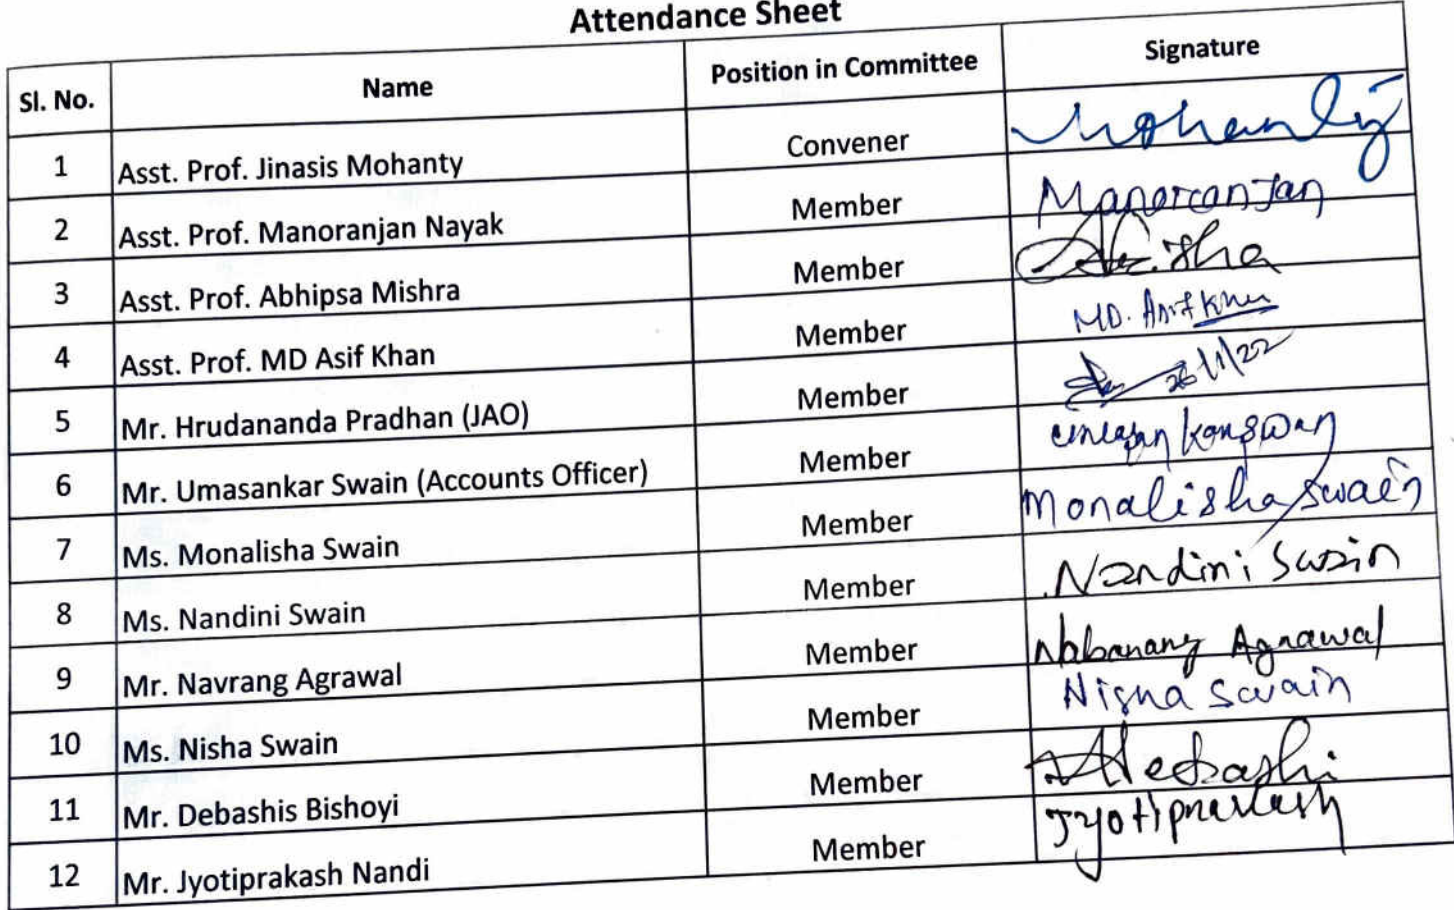 Attendance Sheet
Sl. No. Name Position in Committee Signature
1 Asst. Prof. Jinasis Mohanty Convener Mohanty
2 Asst. Prof. Manoranjan Nayak Member Manoranjan
3 Asst. Prof. Abhipsa Mishra Member
4 Asst. Prof. MD Asif Khan Member MD. Asif Khan
5 Mr. Hrudananda Pradhan (JAO) Member 26/1/22
6 Mr. Umasankar Swain (Accounts Officer) Member
7 Ms. Monalisha Swain Member Monalisha Swain
8 Ms. Nandini Swain Member Nandini Swain
9 Mr. Navrang Agrawal Member Nabarang Agrawal
10 Ms. Nisha Swain Member Nisha Swain
11 Mr. Debashis Bishoyi Member Debashi
12 Mr. Jyotiprakash Nandi Member Jyotiprakash